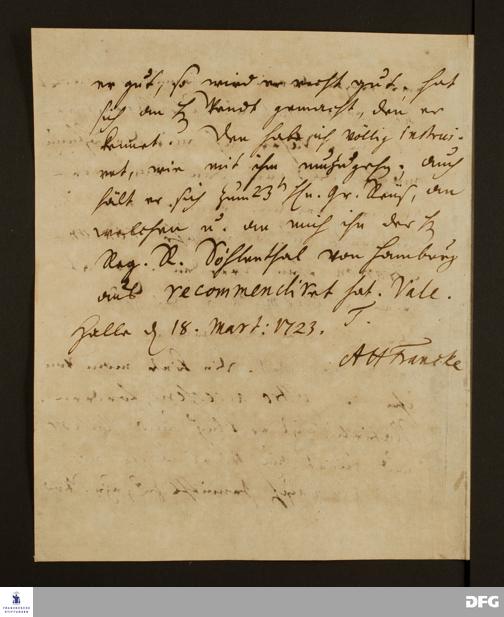 er gut, so wird er recht gut. hat
sich an H. Wendt gemacht, den er
kennet. Den habe ich völlig instrui-
ret, wie mit ihm umzugehn; auch
hält er sich zum 23 Hn. Gr. Reuß, an
welchen u. an mich ihn der H
Reg. R. Söhlenthal von Hamburg
aus recommendiret hat. Vale.
Halle d 18. Mart: 1723. T.
AHFrancke
FRANCKESCHE
STIFTUNGEN
DFG